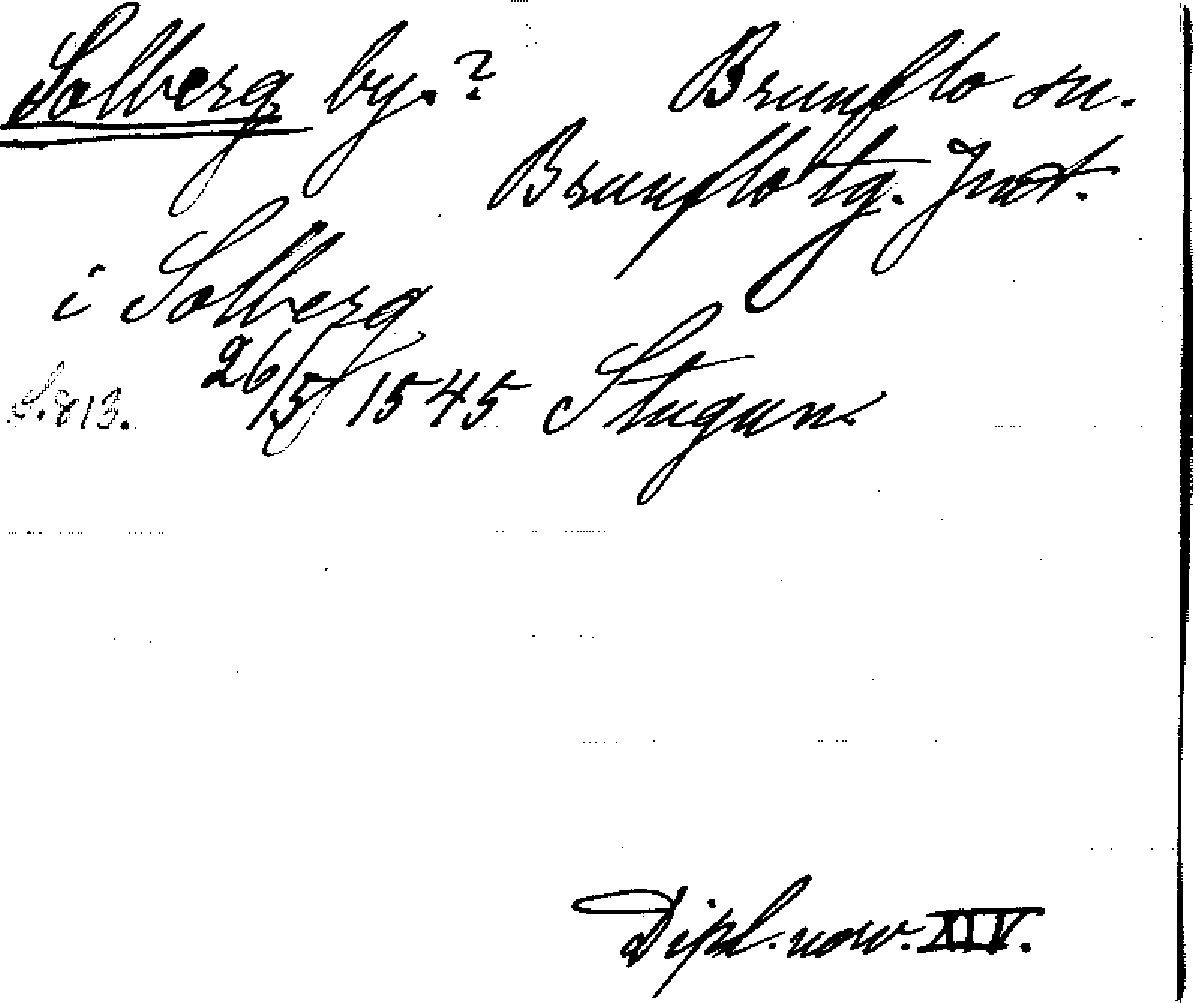 Solberg by.? Brunflo sn.
Brunflo tg. Jmt.
i Solberg
S. 813. 26/5 1545 Stugun.
Dipl. norv. XIV.